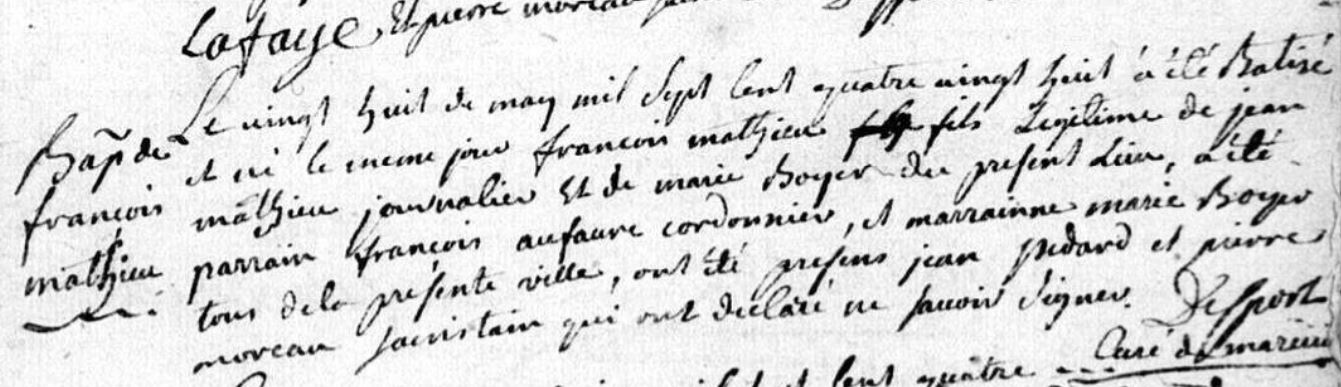 Lafaye Et pierre moreau
Le vingt huit de may mil Sept cent quatre vingt huit à été Batisé
et né le meme jour françois mathieu fils Legitime de jean
mathieu journalier Et de marie Boyer du present Lieu, a été
parrain françois aufaure cordonnier, et marrainne marie Boyer
tous dela présente ville, ont été presens jean pedard et pierre
moreau sacristain qui ont declaré ne savoir signer. Desport
Curé de mareuil
Bap̃ de
françois
mathieu
cent quatre